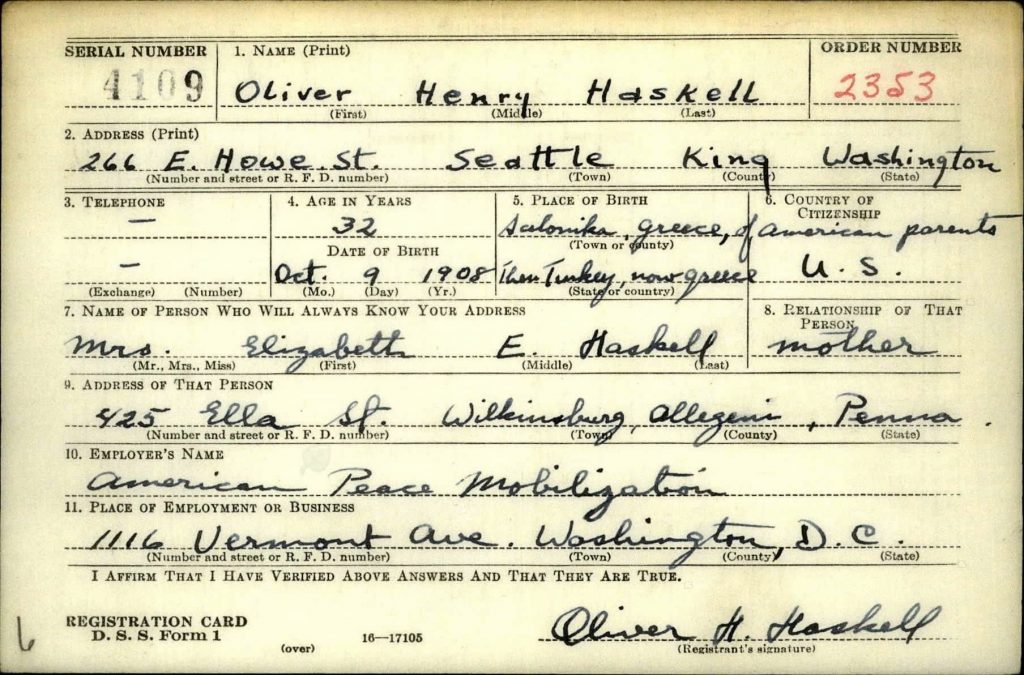 SERIAL NUMBER
4109
1. NAME (Print)
Oliver Henry Haskell
(First) (Middle) (Last)
ORDER NUMBER
2353
2. ADDRESS (Print)
266 E. Howe St. Seattle King Washington
(Number and street or R. F. D. number) (Town) (County) (State)
3. TELEPHONE
—
—
(Exchange) (Number)
4. AGE IN YEARS
32
DATE OF BIRTH
Oct. 9 1908
(Mo.) (Day) (Yr.)
5. PLACE OF BIRTH
Salonika, Greece, of American parents
(Town or county)
Then Turkey, now Greece
(State or country)
6. COUNTRY OF
CITIZENSHIP
U. S.
7. NAME OF PERSON WHO WILL ALWAYS KNOW YOUR ADDRESS
Mrs. Elizabeth E. Haskell
(Mr., Mrs., Miss) (First) (Middle) (Last)
8. RELATIONSHIP OF THAT
PERSON
mother
9. ADDRESS OF THAT PERSON
425 Ella St. Wilkinsburg, Allegeni, Penna.
(Number and street or R. F. D. number) (Town) (County) (State)
10. EMPLOYER'S NAME
American Peace Mobilization
11. PLACE OF EMPLOYMENT OR BUSINESS
1116 Vermont Ave. Washington, D.C.
(Number and street or R. F. D. number) (Town) (County) (State)
I AFFIRM THAT I HAVE VERIFIED ABOVE ANSWERS AND THAT THEY ARE TRUE.
REGISTRATION CARD
D. S. S. Form 1
16—17105
(over)
Oliver H. Haskell
(Registrant's signature)
6